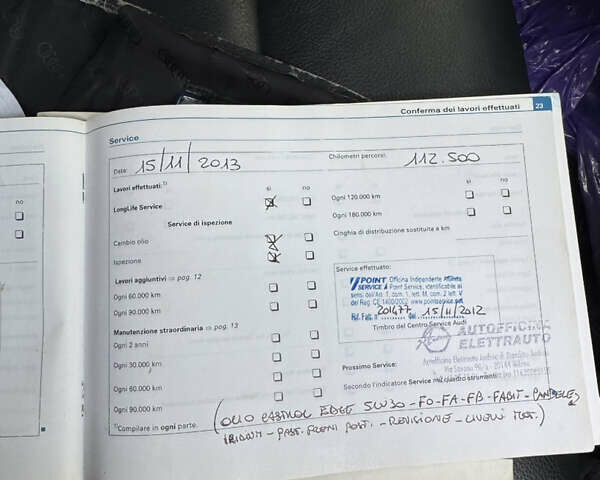 Conferma dei lavori effettuati 23
Service
Data: 15/11/2013 Chilometri percorsi: 112.500
Lavori effettuati:¹⁾ sì no sì no
LongLife Service Ogni 120.000 km
Service di ispezione Ogni 180.000 km
Cambio olio Cinghia di distribuzione sostituita a km
Ispezione
Lavori aggiuntivi ⇨ pag. 12
Ogni 60.000 km
Ogni 90.000 km
Manutenzione straordinaria ⇨ pag. 13
Ogni 2 anni
Ogni 30.000 km
Ogni 60.000 km
Ogni 90.000 km
¹⁾Compilare in ogni parte.
Service effettuato:
POINT SERVICE Officina Indipendente
Point Service, identificabile ai
sensi dell'Art. 1, com. 1, lett. M, com. 2 lett. V
del Reg. CE 1400/2002 www.pointservice.net
Rif. Fatt. n° 201477 del 15/11/2012
Timbro del Centro Service Audi
AUTOFFICINA
ELETTRAUTO
Prossimo Service:
Secondo l'indicatore Service nel quadro strumenti
(OLIO CASTROL EDGE 5W30 - FO - FA - FB - FABIT -
- PAST. FRENI POST. - REVISIONE - LIVELLI MOT.)
no